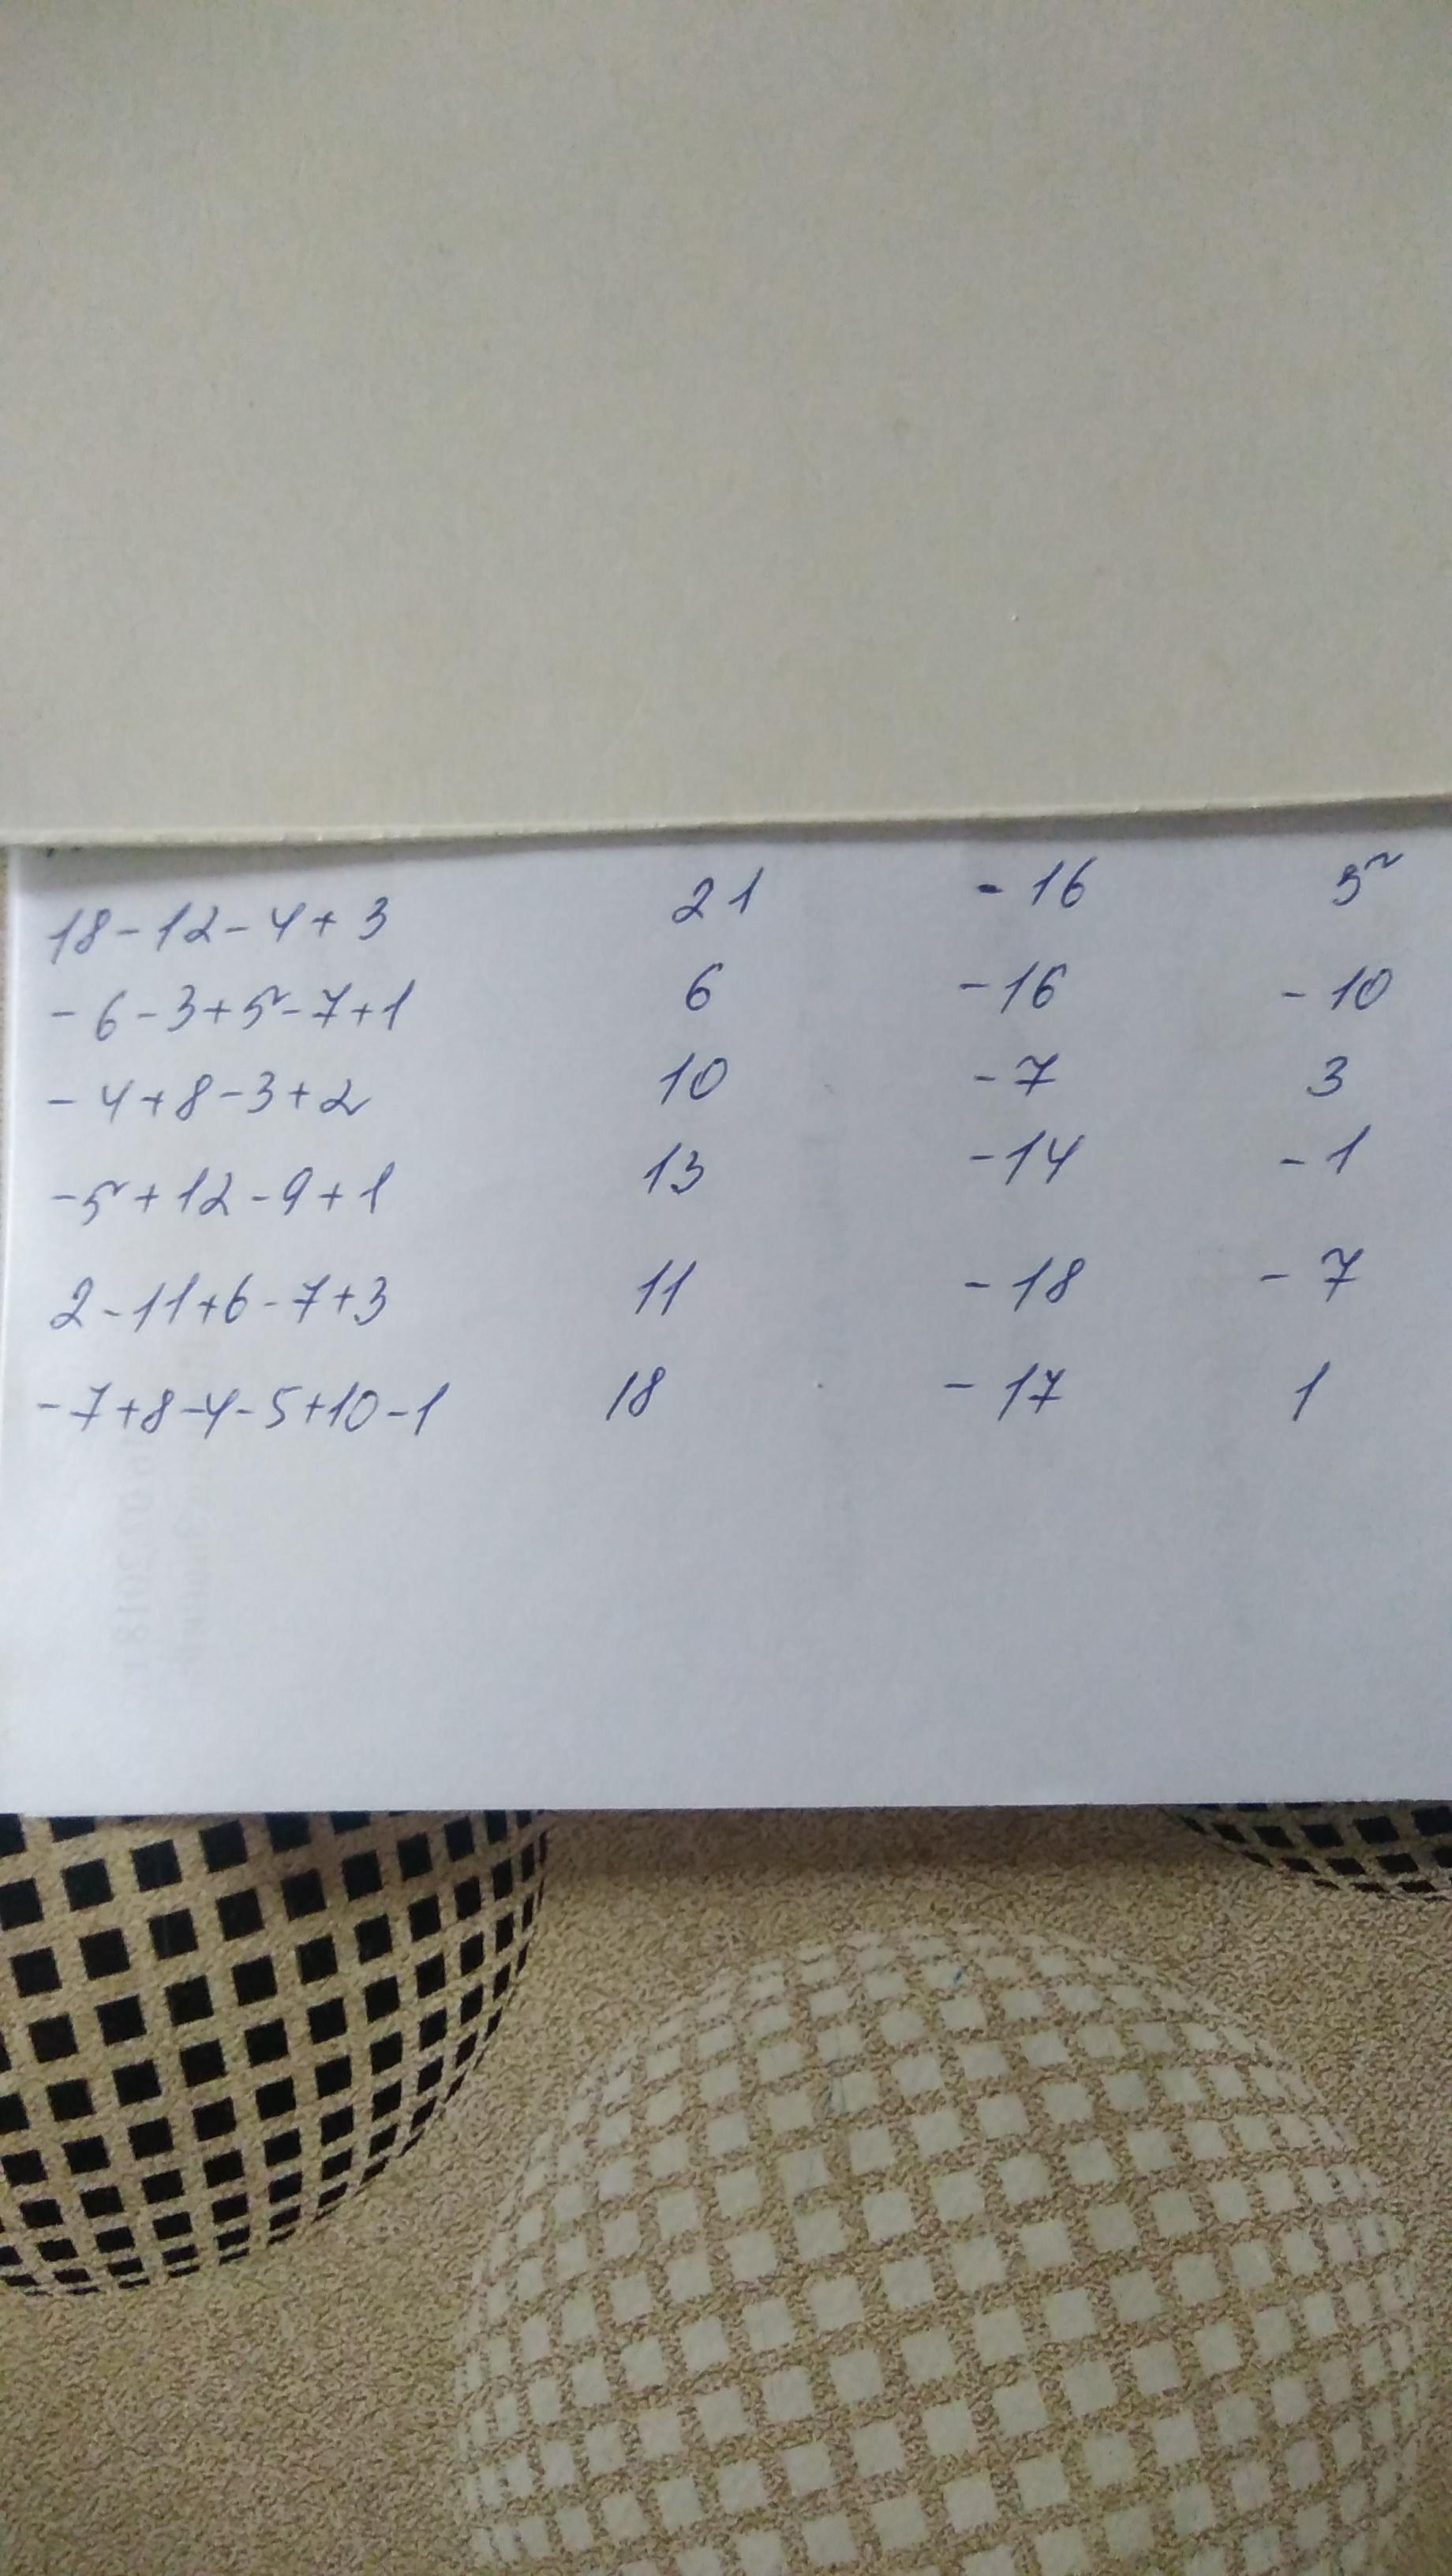 18-12-4+3 21 -16 5
-6-3+5-7+1 6 -16 -10
-4+8-3+2 10 -7 3
-5+12-9+1 13 -14 -1
2-11+6-7+3 11 -18 -7
-7+8-4-5+10-1 18 -17 1